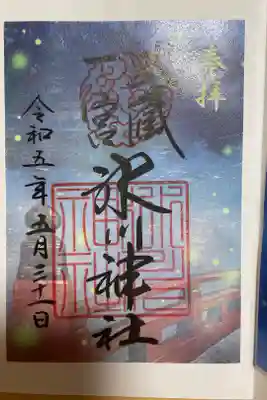 奉拝
武蔵一宮
氷川神社
令和五年五月三十一日